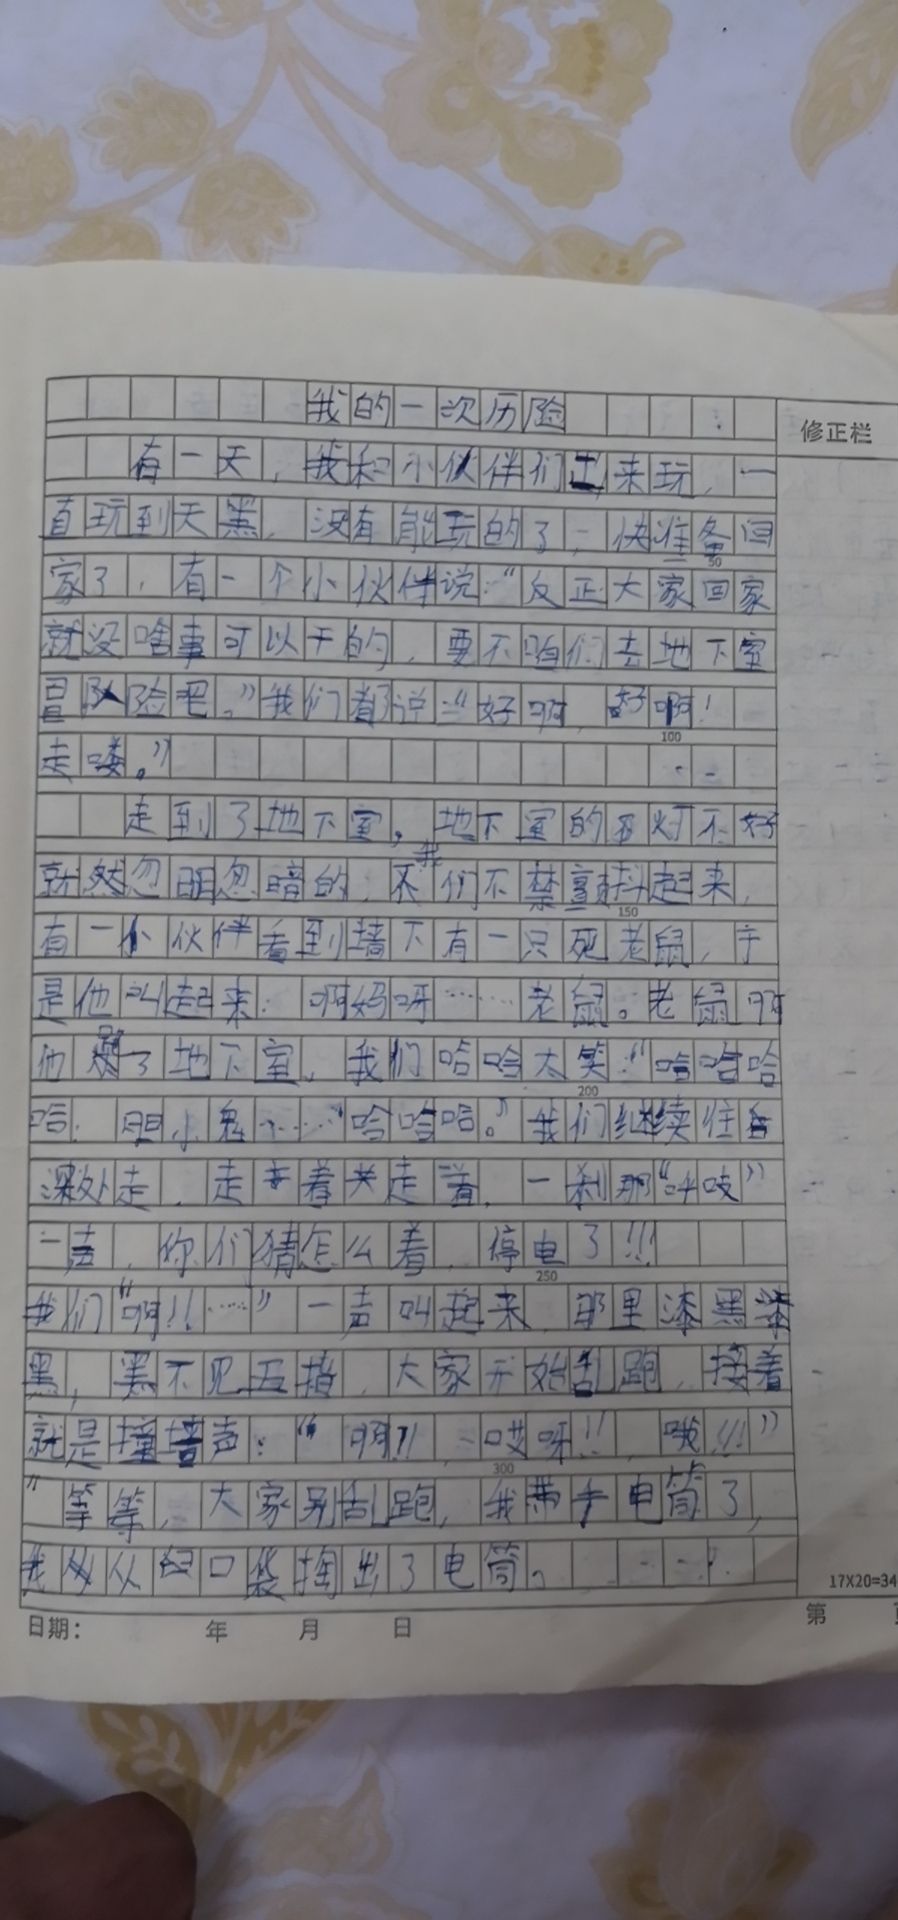 我的一次历险
修正栏
有一天，我和小伙伴们来玩，一
直玩到天黑，没有能玩的了，快准备回
50
家了，有一个小伙伴说：“反正大家回家
就没啥事可以干的，要不咱们去地下室
冒险吧。”我们都说：“好啊，好啊！
100
走喽。”
走到了地下室，地下室的灯不好
就然忽明忽暗的，我们不禁颤抖起来，
150
有一小伙伴看到墙下有一只死老鼠，于
是他叫起来：啊妈呀……老鼠。老鼠啊
他了地下室，我们哈哈大笑：“哈哈哈
200
哈，胆小鬼……哈哈哈。”我们继续往
深处走，走着走着，一刹那“咔吱”
一声，你们猜怎么着，停电了!!!
250
我们“啊!!……”一声叫起来，那里漆黑漆
黑，黑不见五指，大家开始乱跑，接着
就是撞墙声：“啊!!，哎呀!!，哦!!!”
300
“等等，大家别乱跑，我带手电筒了，
我从口袋掏出了电筒。
17X20=34
日期： 年 月 日 第